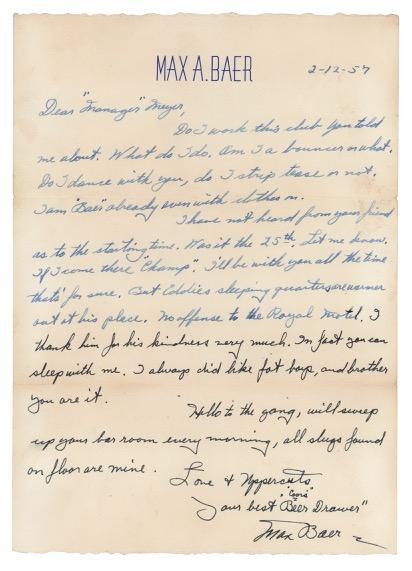 MAX A. BAER
2-12-57
Dear "Manager" Meyer,
Do I work this club you told
me about. What do I do. Am I a bouncer or what.
Do I dance with you, do I strip tease or not.
I am "Baer" already even with clothes on.
I have not heard from your friend
as to the starting time. Was it the 25th. Let me know.
If I come there "Champ". I'll be with you all the time
thats' for sure. But Eddie's sleeping quarters are warmer
out at his place. No offense to the Royal Motel. I
thank him for his kindness very much. In fact you can
sleep with me. I always did like fat boys, and brother
you are it.
Hello to the gang, will sweep
up your bar room every morning, all slugs found
on floor are mine.
Love & Uppercuts
Your best "Beer Drawer"
Max Baer